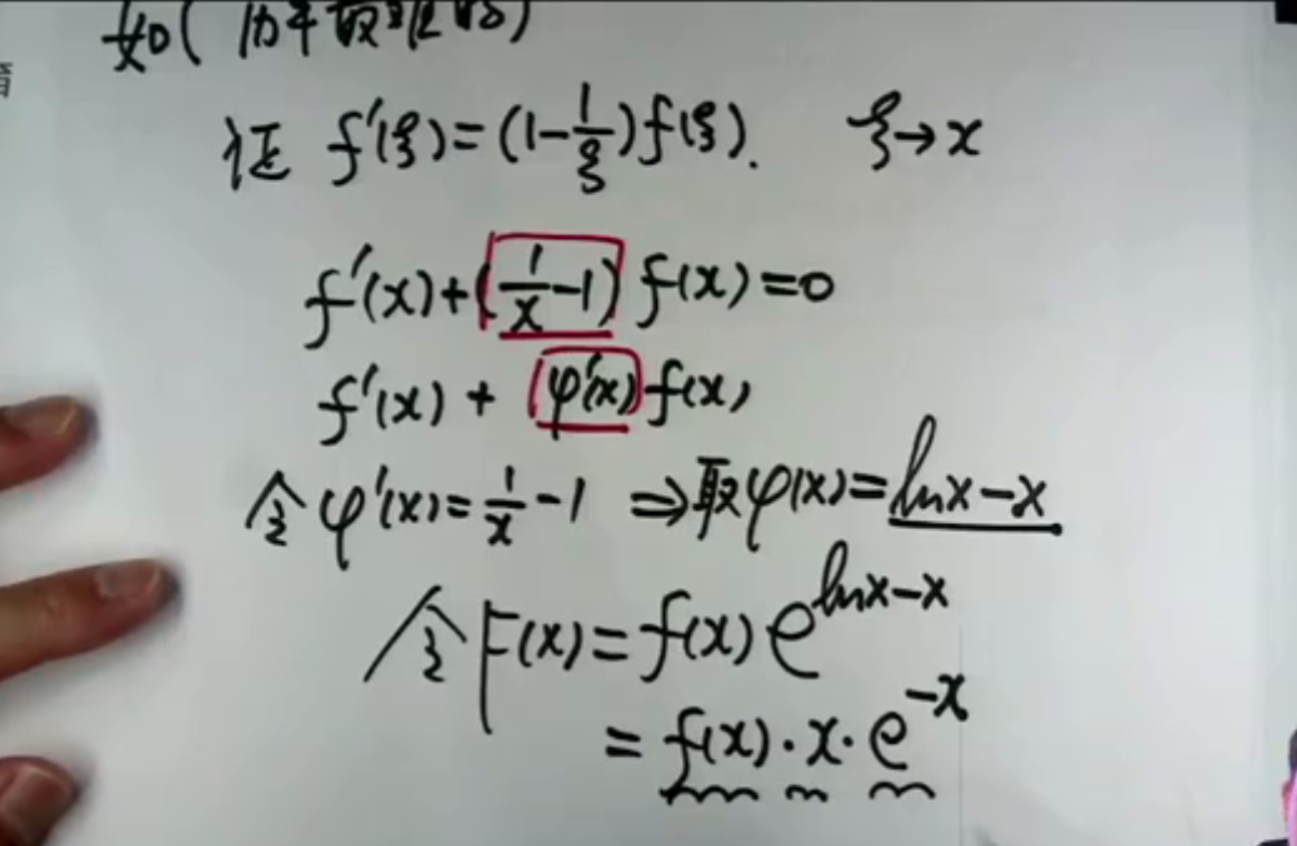 如(历年真题
证 f'(ξ)=(1-1/ξ)f(ξ). ξ→x
f'(x)+(1/x-1)f(x)=0
f'(x)+φ'(x)f(x)
令φ'(x)=1/x-1 ⇒取φ(x)=lnx-x
令F(x)=f(x)e^{lnx-x}
=f(x)·x·e^{-x}